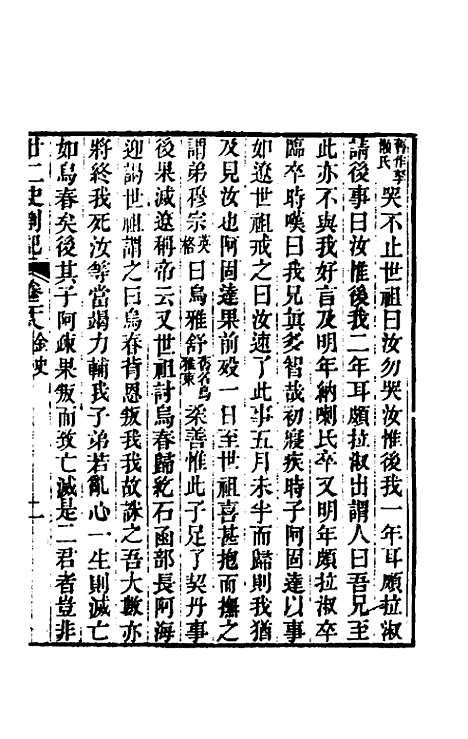 舊作拏
懶氏
哭不止世祖曰汝勿哭汝惟後我一年耳頗拉淑
請後事曰汝惟後我二年耳頗拉淑出謂人曰吾兄至
此亦不與我好言及明年納喇氏卒又明年頗拉淑卒
臨卒時嘆曰我兄眞多智哉初寢疾時子阿固達以事
如遼世祖戒之曰汝速了此事五月未半而歸則我猶
及見汝也阿固達果前殁一日至世祖喜甚抱而撫之
謂弟穆宗英格曰烏雅舒舊名烏雅束柔善惟此子足了契丹事
後果滅遼稱帝云又世祖討烏春歸紇石函部長阿海
迎謁世祖謂之曰烏春背恩叛我我故誅之吾大數亦
將終我死汝等當竭力輔我子弟若亂心一生則滅亡
如烏春矣後其子阿疎果叛而致亡滅是二君者豈非
廿二史劄記 卷二十八 金史 十一